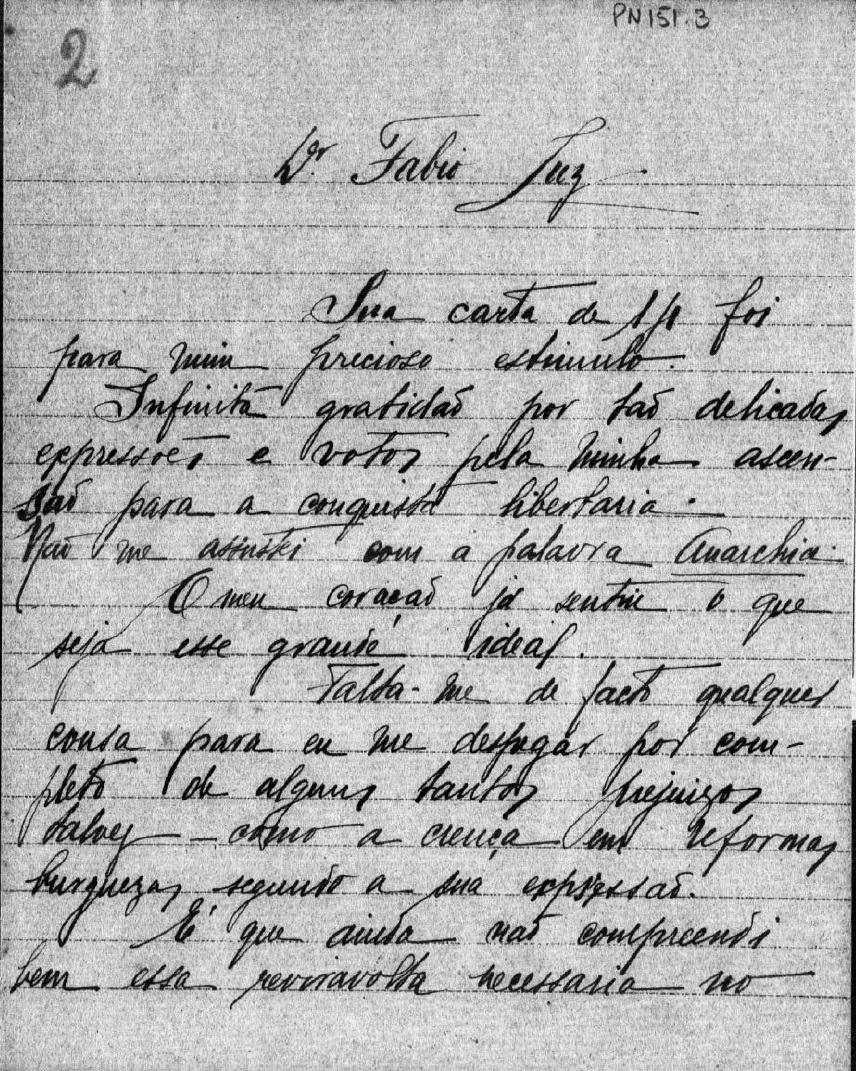 PN151.3
2
Dr. Fabio Luz
Sua carta de foi
para mim precioso estimulo.
Infinita gratidaõ por taõ delicadas
expressões e votos pela minha ascen-
saõ para a conquista libertaria.
Naõ me assustei com a palavra Anarchia.
O meu coraçaõ já sentiu o que
seja esse grande ideal.
Falta-me de facto qualquer
cousa para eu me desfogar por com-
pleto de alguns tantos prejuizos
talvez – como a crença em reformas
burguezas, segundo a sua expressaõ.
É que ainda naõ compreendi
bem essa reviravolta necessaria no